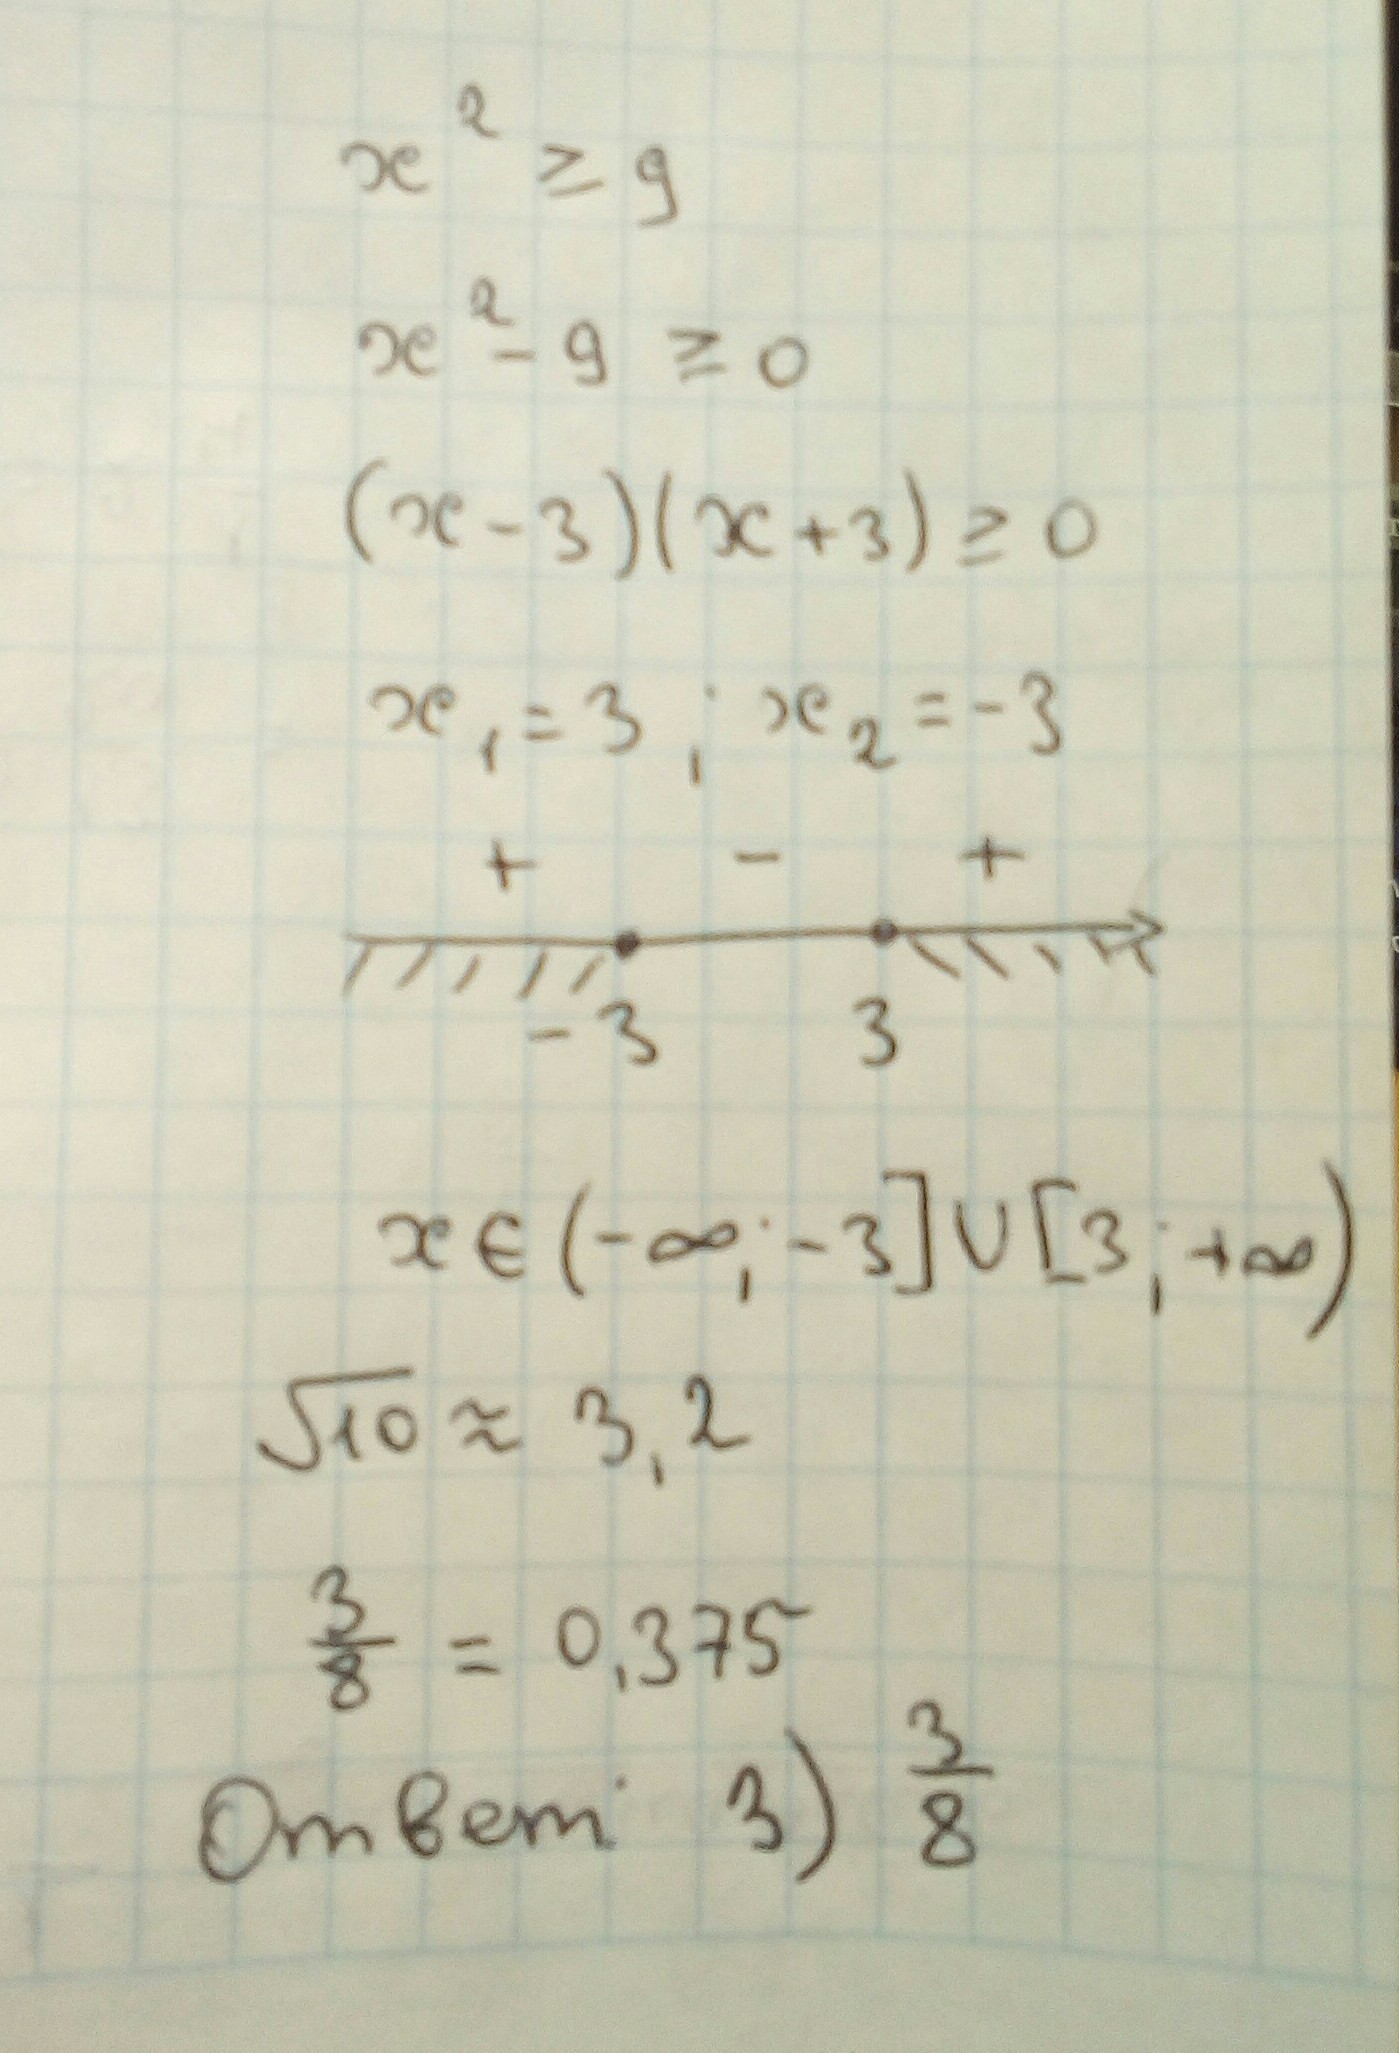 x² ≥ 9
x² - 9 ≥ 0
(x - 3)(x + 3) ≥ 0
x₁ = 3 ; x₂ = -3
+ - +
-3 3
x ∈ (-∞; -3] ∪ [3; +∞)
√10 ≈ 3,2
3/8 = 0,375
Ответ: 3) 3/8